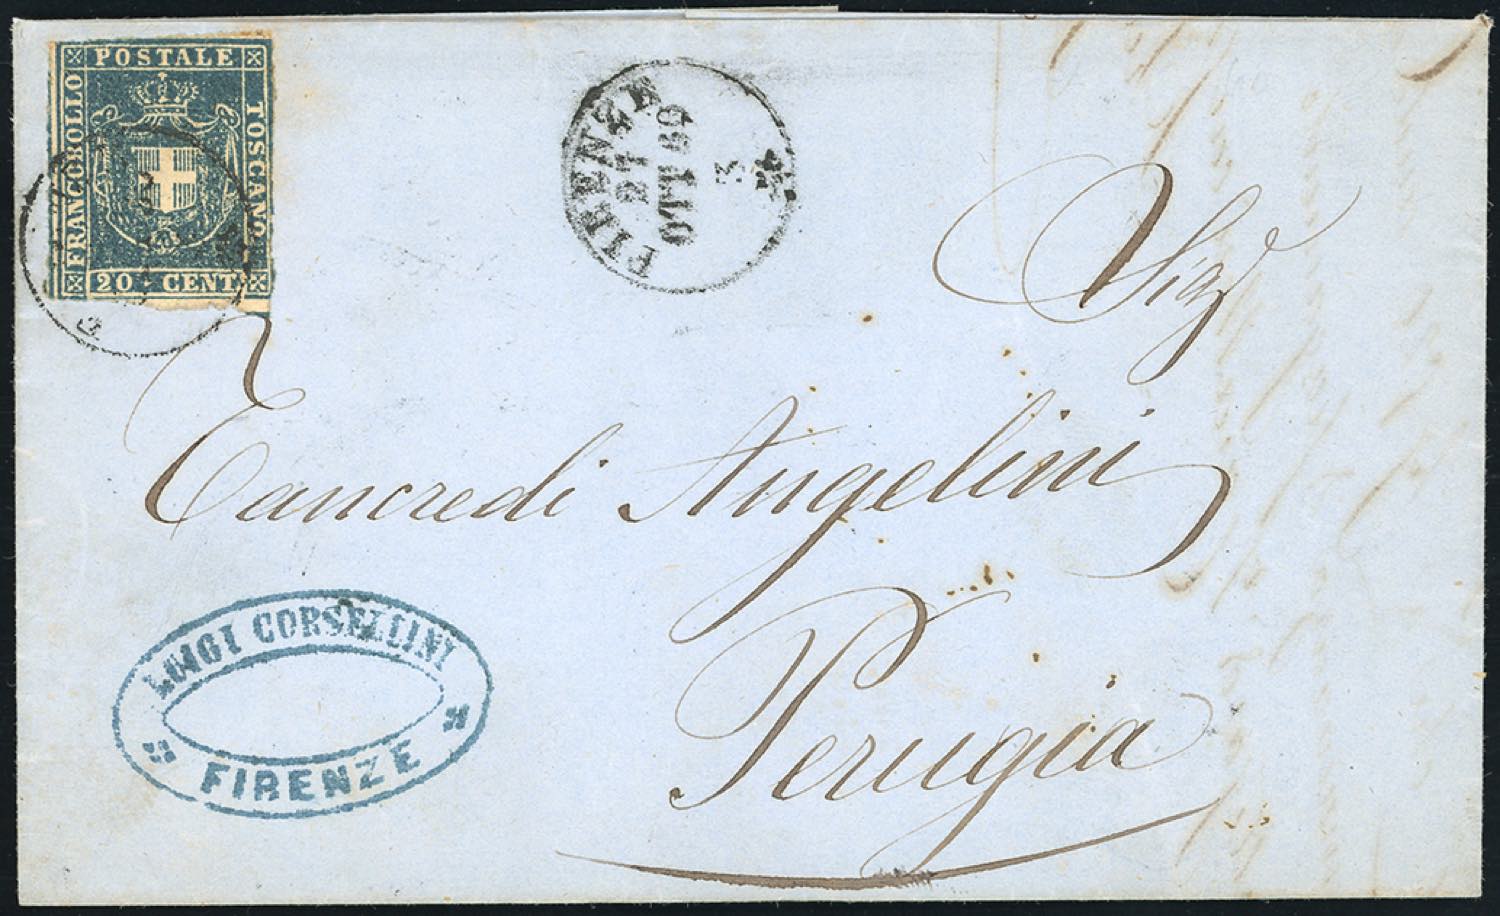 POSTALE
FRANCOBOLLO
TOSCANO
20 CENT
FIRENZE
OTT 60
Sigr
Tancredi Angelini
Perugia
LUIGI CORSELLINI
FIRENZE